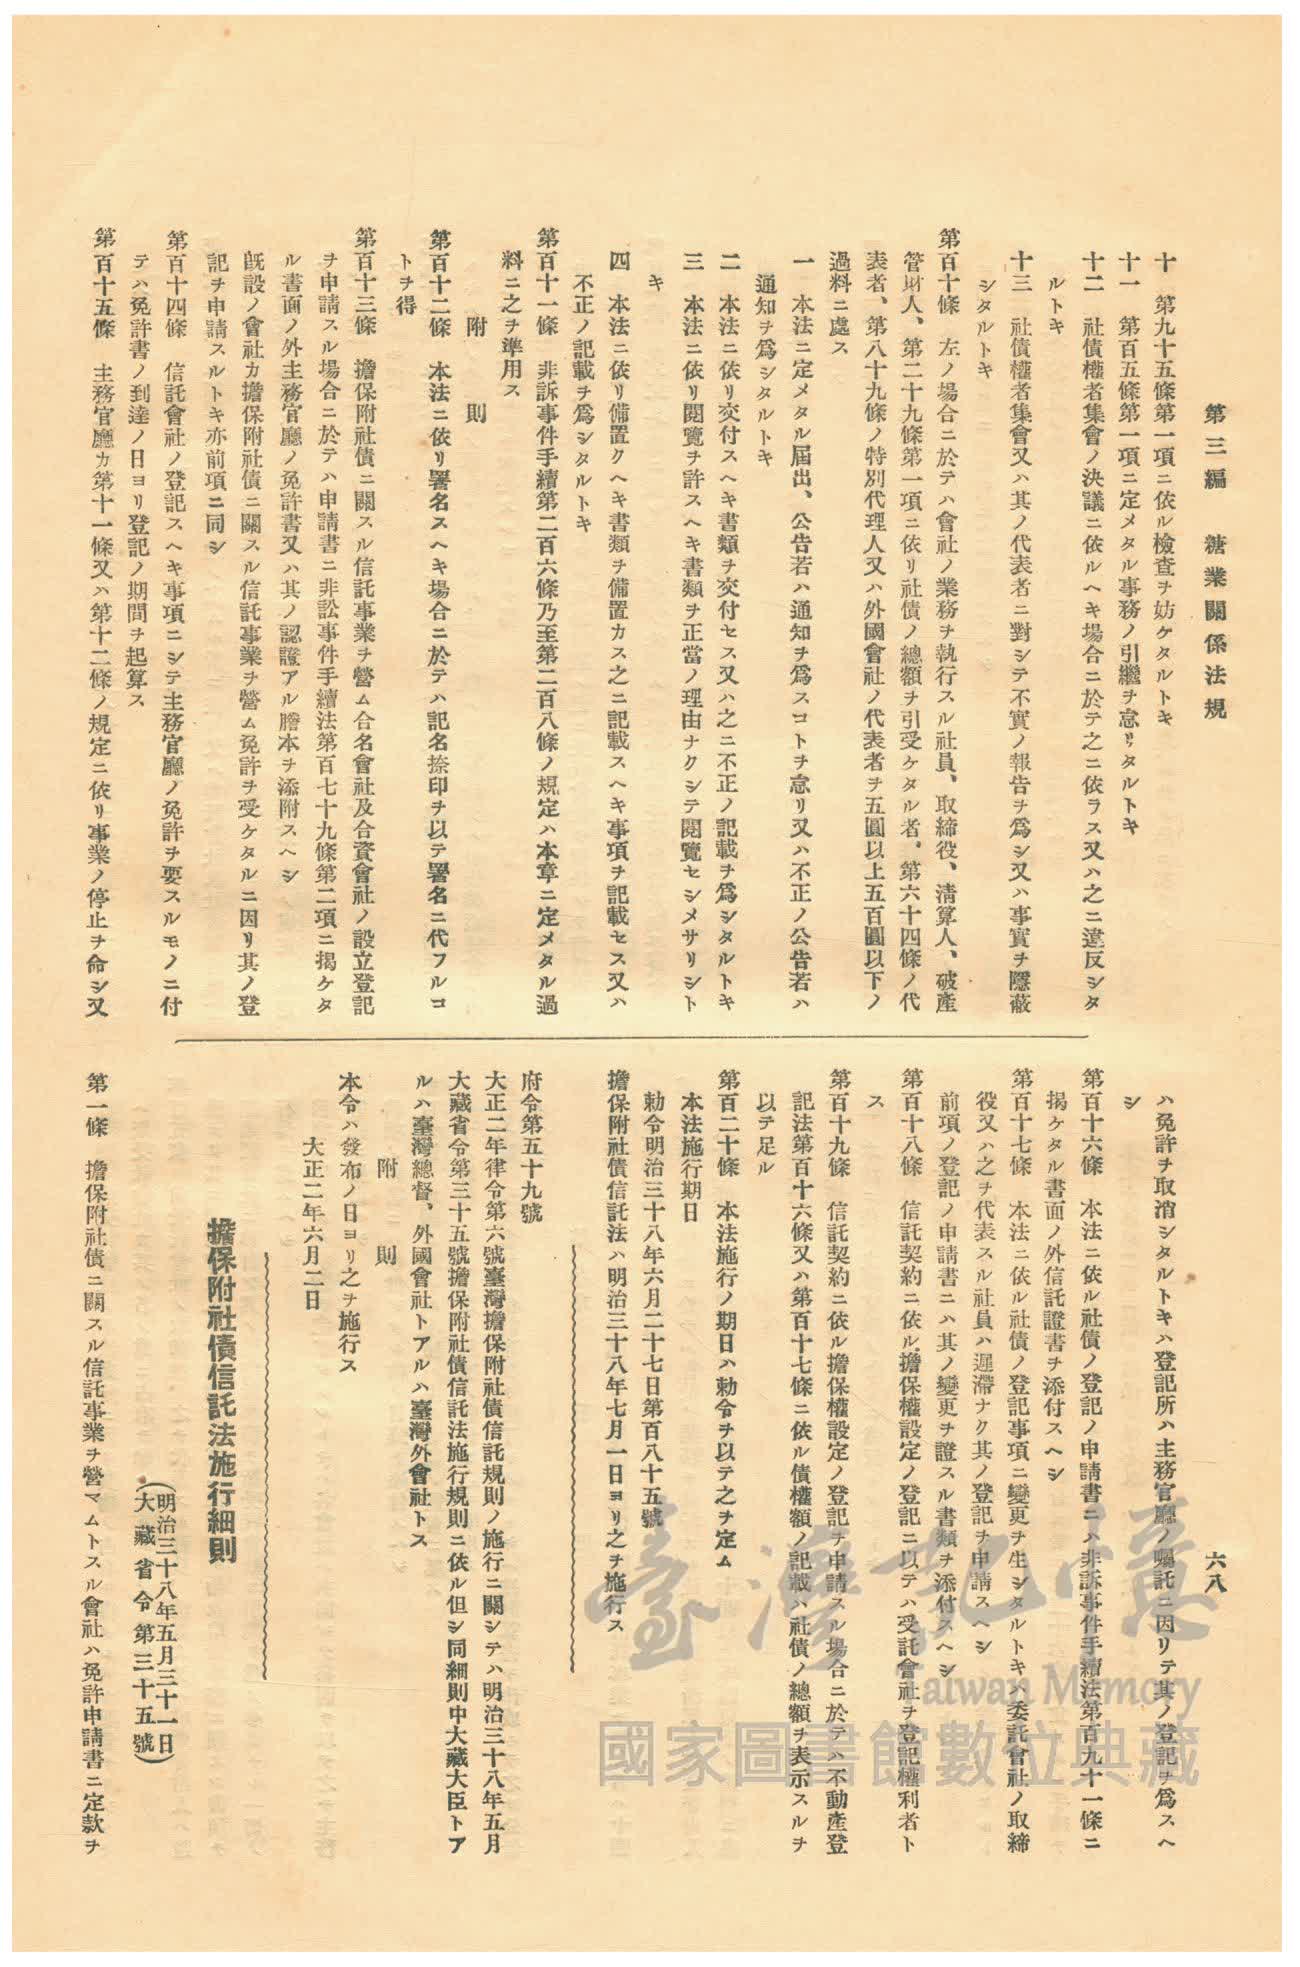 第三編　糖業關係法規
六八
十　第九十五條第一項ニ依ル檢查ヲ妨ケタルトキ
十一　第百五條第一項ニ定メタル事務ノ引繼ヲ怠リタルトキ
十二　社債權者集會ノ決議ニ依ルヘキ場合ニ於テ之ニ依ラス又ハ之ニ違反シタ
ルトキ
十三　社債權者集會又ハ其ノ代表者ニ對シテ不實ノ報告ヲ爲シ又ハ事實ヲ隱蔽
シタルトキ
第百十條　左ノ場合ニ於テハ會社ノ業務ヲ執行スル社員、取締役、清算人、破產
管財人、第二十九條第一項ニ依リ社債ノ總額ヲ引受ケタル者、第六十四條ノ代
表者、第八十九條ノ特別代理人又ハ外國會社ノ代表者ヲ五圓以上五百圓以下ノ
過料ニ處ス
一　本法ニ定メタル屆出、公告若ハ通知ヲ爲スコトヲ怠リ又ハ不正ノ公告若ハ
通知ヲ爲シタルトキ
二　本法ニ依リ交付スヘキ書類ヲ交付セス又ハ之ニ不正ノ記載ヲ爲シタルトキ
三　本法ニ依リ閱覽ヲ許スヘキ書類ヲ正當ノ理由ナクシテ閱覽セシメサリシト
キ
四　本法ニ依リ備置クヘキ書類ヲ備置カス之ニ記載スヘキ事項ヲ記載セス又ハ
不正ノ記載ヲ爲シタルトキ
第百十一條　非訴事件手續第二百六條乃至第二百八條ノ規定ハ本章ニ定メタル過
料ニ之ヲ準用ス
附　則
第百十二條　本法ニ依リ署名スヘキ場合ニ於テハ記名捺印ヲ以テ署名ニ代フルコ
トヲ得
第百十三條　擔保附社債ニ關スル信託事業ヲ營ム合名會社及合資會社ノ設立登記
ヲ申請スル場合ニ於テハ申請書ニ非訟事件手續法第百七十九條第二項ニ揭ケタ
ル書面ノ外主務官廳ノ免許書又ハ其ノ認證アル謄本ヲ添附スヘシ
既設ノ會社カ擔保附社債ニ關スル信託事業ヲ營ム免許ヲ受ケタルニ因リ其ノ登
記ヲ申請スルトキ亦前項ニ同シ
第百十四條　信託會社ノ登記スヘキ事項ニシテ主務官廳ノ免許ヲ要スルモノニ付
テハ免許書ノ到達ノ日ヨリ登記ノ期間ヲ起算ス
第百十五條　主務官廳カ第十一條又ハ第十二條ノ規定ニ依リ事業ノ停止ヲ命シ又
ハ免許ヲ取消シタルトキハ登記所ハ主務官廳ノ囑託ニ因リテ其ノ登記ヲ爲スヘ
シ
第百十六條　本法ニ依ル社債ノ登記ノ申請書ニハ非訴事件手續法第百九十一條ニ
揭ケタル書面ノ外信託證書ヲ添付スヘシ
第百十七條　本法ニ依ル社債ノ登記事項ニ變更ヲ生シタルトキハ委託會社ノ取締
役又ハ之ヲ代表スル社員ハ遲滯ナク其ノ登記ヲ申請スヘシ
前項ノ登記ノ申請書ニハ其ノ變更ヲ證スル書類ヲ添付スヘシ
第百十八條　信託契約ニ依ル擔保權設定ノ登記ニ以テハ受託會社ヲ登記權利者ト
ス
第百十九條　信託契約ニ依ル擔保權設定ノ登記ヲ申請スル場合ニ於テハ不動產登
記法第百十六條又ハ第百十七條ニ依ル債權額ノ記載ハ社債ノ總額ヲ表示スルヲ
以テ足ル
第百二十條　本法施行ノ期日ハ勅令ヲ以テ之ヲ定ム
本法施行期日
勅令明治三十八年六月二十七日第百八十五號
擔保附社債信託法ハ明治三十八年七月一日ヨリ之ヲ施行ス
府令第五十九號
大正二年律令第六號臺灣擔保附社債信託規則ノ施行ニ關シテハ明治三十八年五月
大藏省令第三十五號擔保附社債信託法施行規則ニ依ル但シ同細則中大藏大臣トア
ルハ臺灣總督、外國會社トアルハ臺灣外會社トス
附　則
本令ハ發布ノ日ヨリ之ヲ施行ス
大正二年六月二日
擔保附社債信託法施行細則
（明治三十八年五月三十一日
大藏省令第三十五號）
第一條　擔保附社債ニ關スル信託事業ヲ營マムトスル會社ハ免許申請書ニ定款ヲ
臺灣記憶
Taiwan Memory
國家圖書館數位典藏